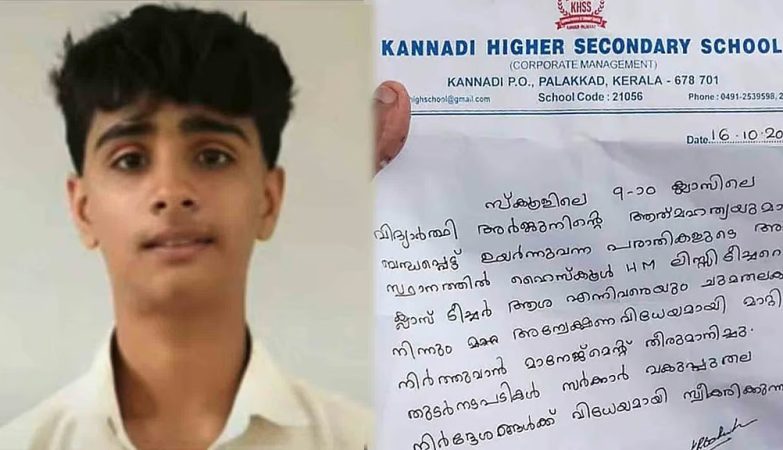 KHSS
KANNADI HIGHER SECONDARY SCHOOL
(CORPORATE MANAGEMENT)
KANNADI P.O., PALAKKAD, KERALA - 678 701
highschool@gmail.com School Code : 21056 Phone : 0491-2539598, 2
Date 16-10-20
സ്കൂളിലെ 9-ാം ക്ലാസിലെ
വിദ്യാർത്ഥി അർജുനിന്റെ ആത്മഹത്യയുമാ
ബന്ധപ്പെട്ട് ഉയർന്നുവന്ന പരാതികളുടെ അ
സ്ഥാനത്തിൽ ഹൈസ്കൂൾ HM ലിസ്സി ടീച്ചറെ
ക്ലാസ് ടീച്ചർ ആശ എന്നിവരെയും ചുമതലക
നിന്നും അന്വേഷണ വിധേയമായി മാറ്റി
നിർത്തുവാൻ മാനേജ്മെന്റ് തീരുമാനിച്ചു.
തുടർനടപടികൾ സർക്കാർ വകുപ്പുതല
നിർദ്ദേശങ്ങൾക്ക് വിധേയമായി സ്വീകരിക്കുന്ന